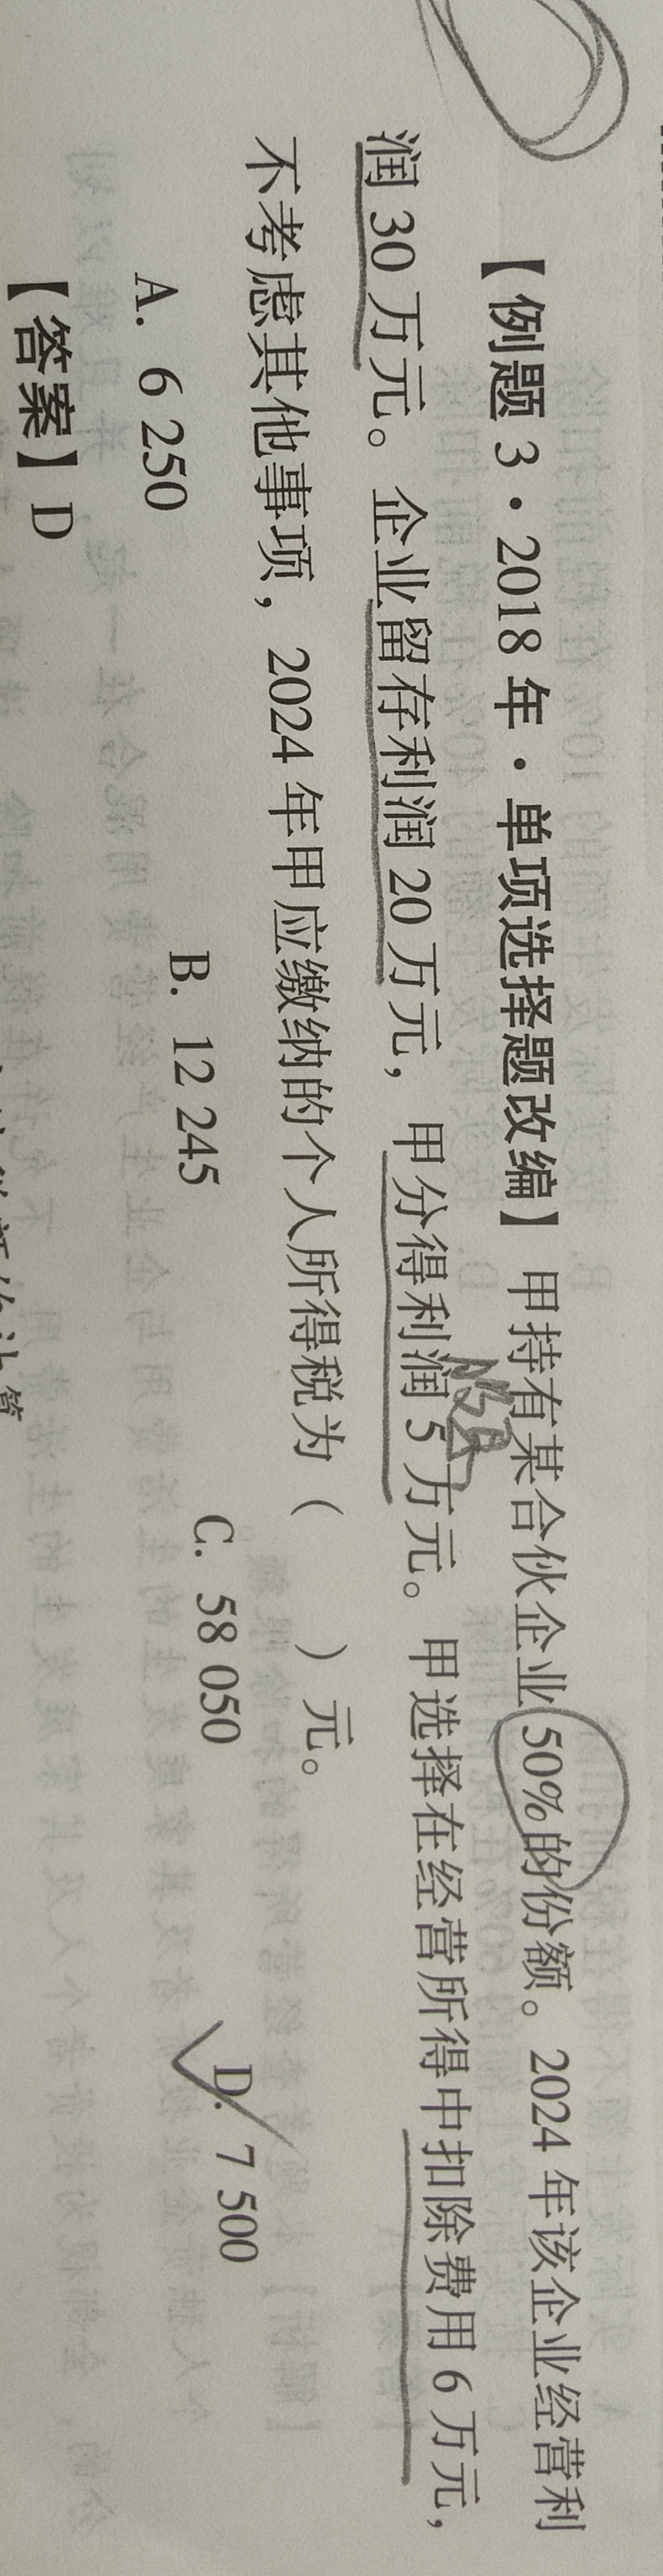 【例题 3 · 2018 年 · 单项选择题改编】甲持有某合伙企业 50% 的份额。2024 年该企业经营利
润 30 万元。企业留存利润 20 万元，甲分得利润 5 万元。甲选择在经营所得中扣除费用 6 万元，
不考虑其他事项，2024 年甲应缴纳的个人所得税为（ ）元。
A. 6 250 B. 12 245 C. 58 050 D. 7 500
【答案】D